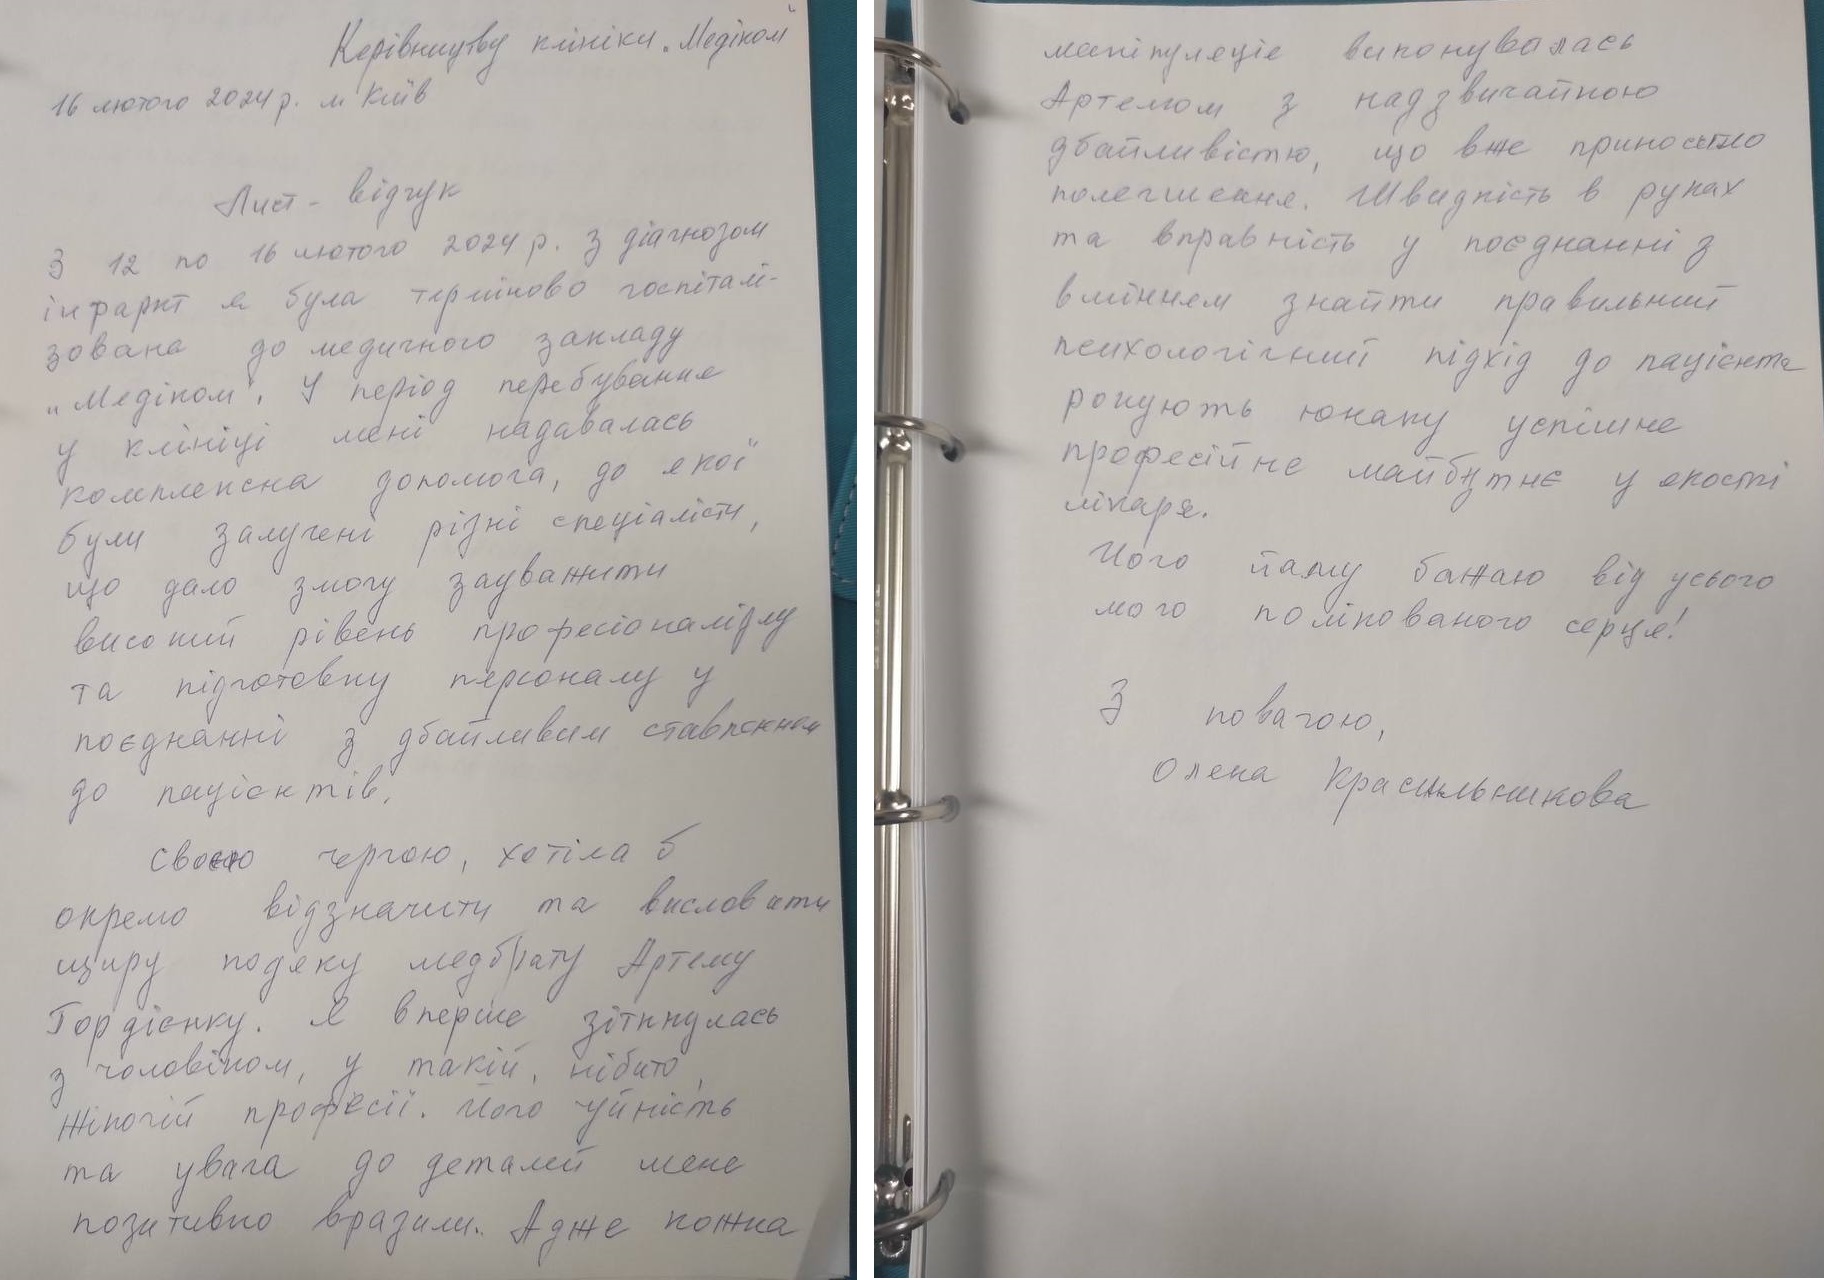 Керівництву клініки „Медіком"
16 лютого 2024 р. м Київ
Лист - відгук
З 12 по 16 лютого 2024 р. з діагнозом
інфаркт я була терміново госпіталі-
зована до медичного закладу
„Медіком". У період перебування
у клініці мені надавалась
комплексна допомога, до якої
були залучені різні спеціалісти,
що дало змогу зауважити
високий рівень професіоналізму
та підготовку персоналу у
поєднанні з дбайливим ставленням
до пацієнтів.
Своєю чергою, хотіла б
окремо відзначити та висловити
щиру подяку медбрату Артему
Гордієнку. Я вперше зіткнулась
з чоловіком, у такій, нібито,
жіночій професії. Його чуйність
та увага до деталей мене
позитивно вразили. Адже кожна
маніпуляція виконувалась
Артемом з надзвичайною
дбайливістю, що вже приносило
полегшення. Швидкість в руках
та вправність у поєднанні з
вмінням знайти правильний
психологічний підхід до пацієнта
рокують юнаку успішне
професійне майбутнє у якості
лікаря.
Чого йому бажаю від усього
мого полікованого серця!
З повагою,
Олена Красильникова